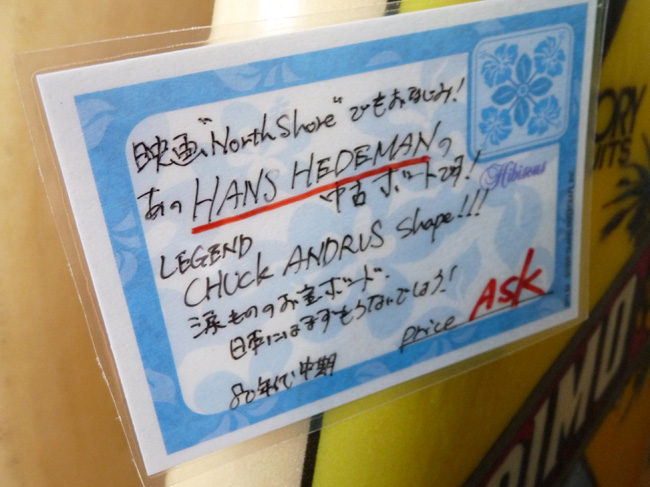 映画"North Shore"でもおなじみ!
あの HANS HEDEMAN の
中古ボードです!
Hibiscus
LEGEND
CHUCK ANDRUS Shape!!!
涙もののお宝ボード、
日本にはまずもうないでしょう!
price ASK
80年代中期
ORY
ITS
PIMO